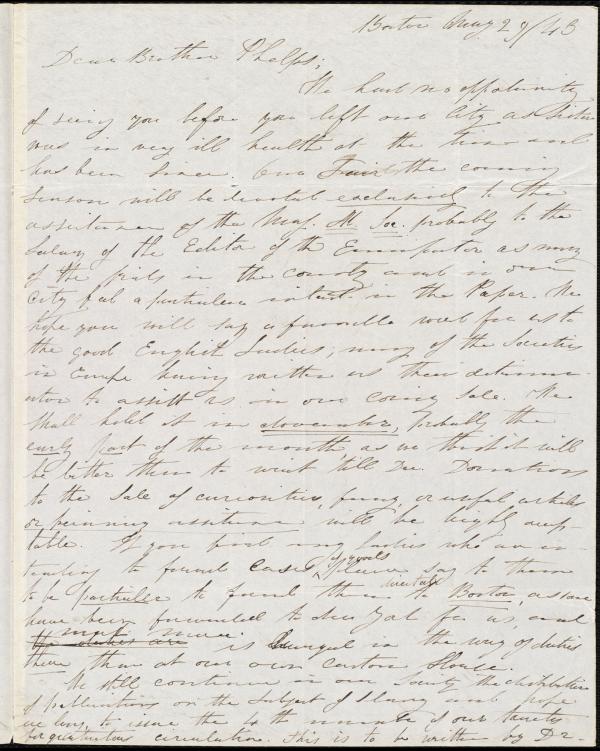 Boston May 29/43
Dear Brother Phelps;
We had no opportunity
of seeing you before you left our City as Sister
was in very ill health at the time and
has been since. Our Fair the coming
season will be devoted exclusively to the
assistance of the Mass. Ab. Soc. probably to the
Salary of the Editor of the Emancipator, as many
of the friends in the country and in our
City feel a particular interest in the Paper. We
hope you will say a favorable word for us to
the good English Ladies; many of the Societies
in Europe having written us their determin-
ation to assist us in our coming Sale. We
shall hold it in November, probably the
early part of the month as we think it will
be better than to wait 'till Dec. Donations
to the Sale of curiosities, fancy, or useful articles
or pecuniary assistance will be highly accep-
table. If you find any ladies who are in-
tending to forward cases of goods please say to them
to be particular to forward them direct to Boston, as some
have been forwarded to New York for us, and
much more is charged in the way of duties
there than at our own Custom House.
We still continue in our Society the distribution
of publications on the subject of Slavery and hope
ere long to issue the 4th number of our tracts
for gratuitous circulation. This is to be written by Dr-